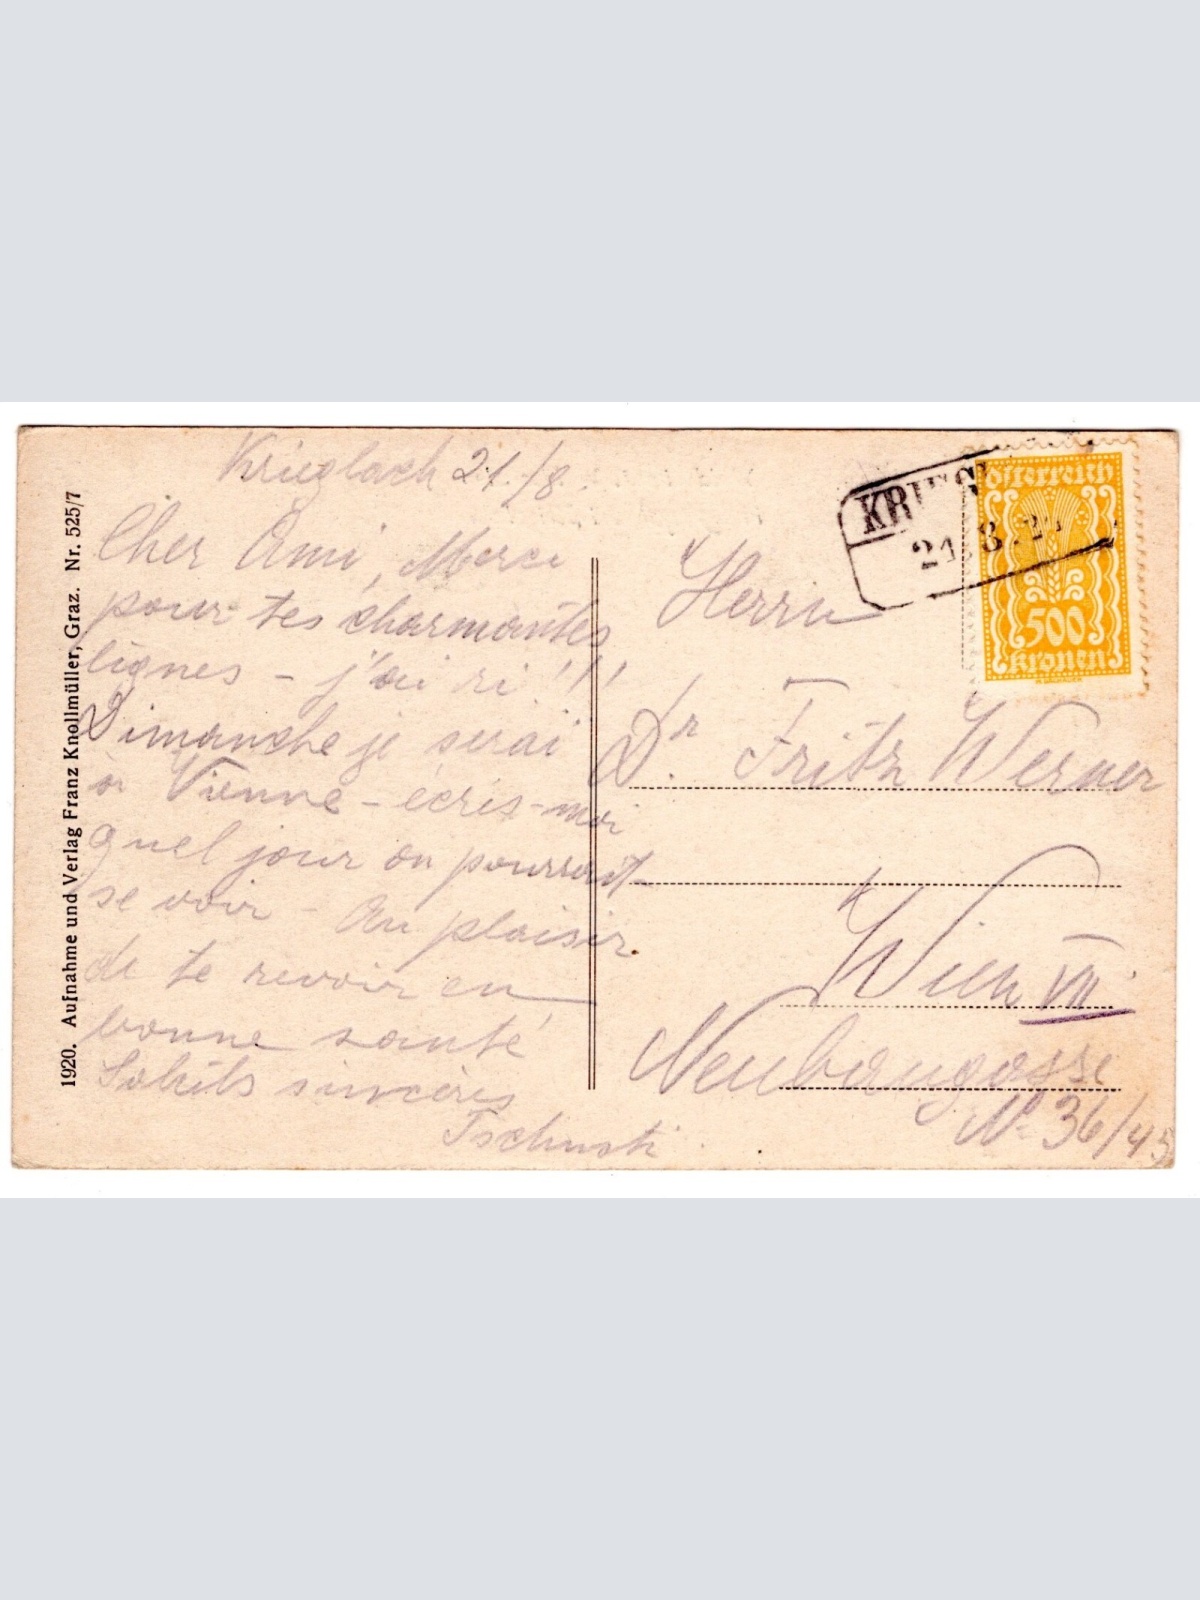 Krieglach 21./8.
Cher Ami, Merci
pour tes charmantes
lignes - j'ai ri !!!
Dimanche je serai
à Vienne - écris-moi
quel jour on pourrait
se voir - Au plaisir
de te revoir en
bonne santé
sincères
1920. Aufnahme und Verlag Franz Knollmüller, Graz. Nr. 525/7
KRIEG
21. 8. 24
österreich
500
kronen
Herrn
Dr. Fritz Werner
Wien VII
Neubaugasse
No 36/45